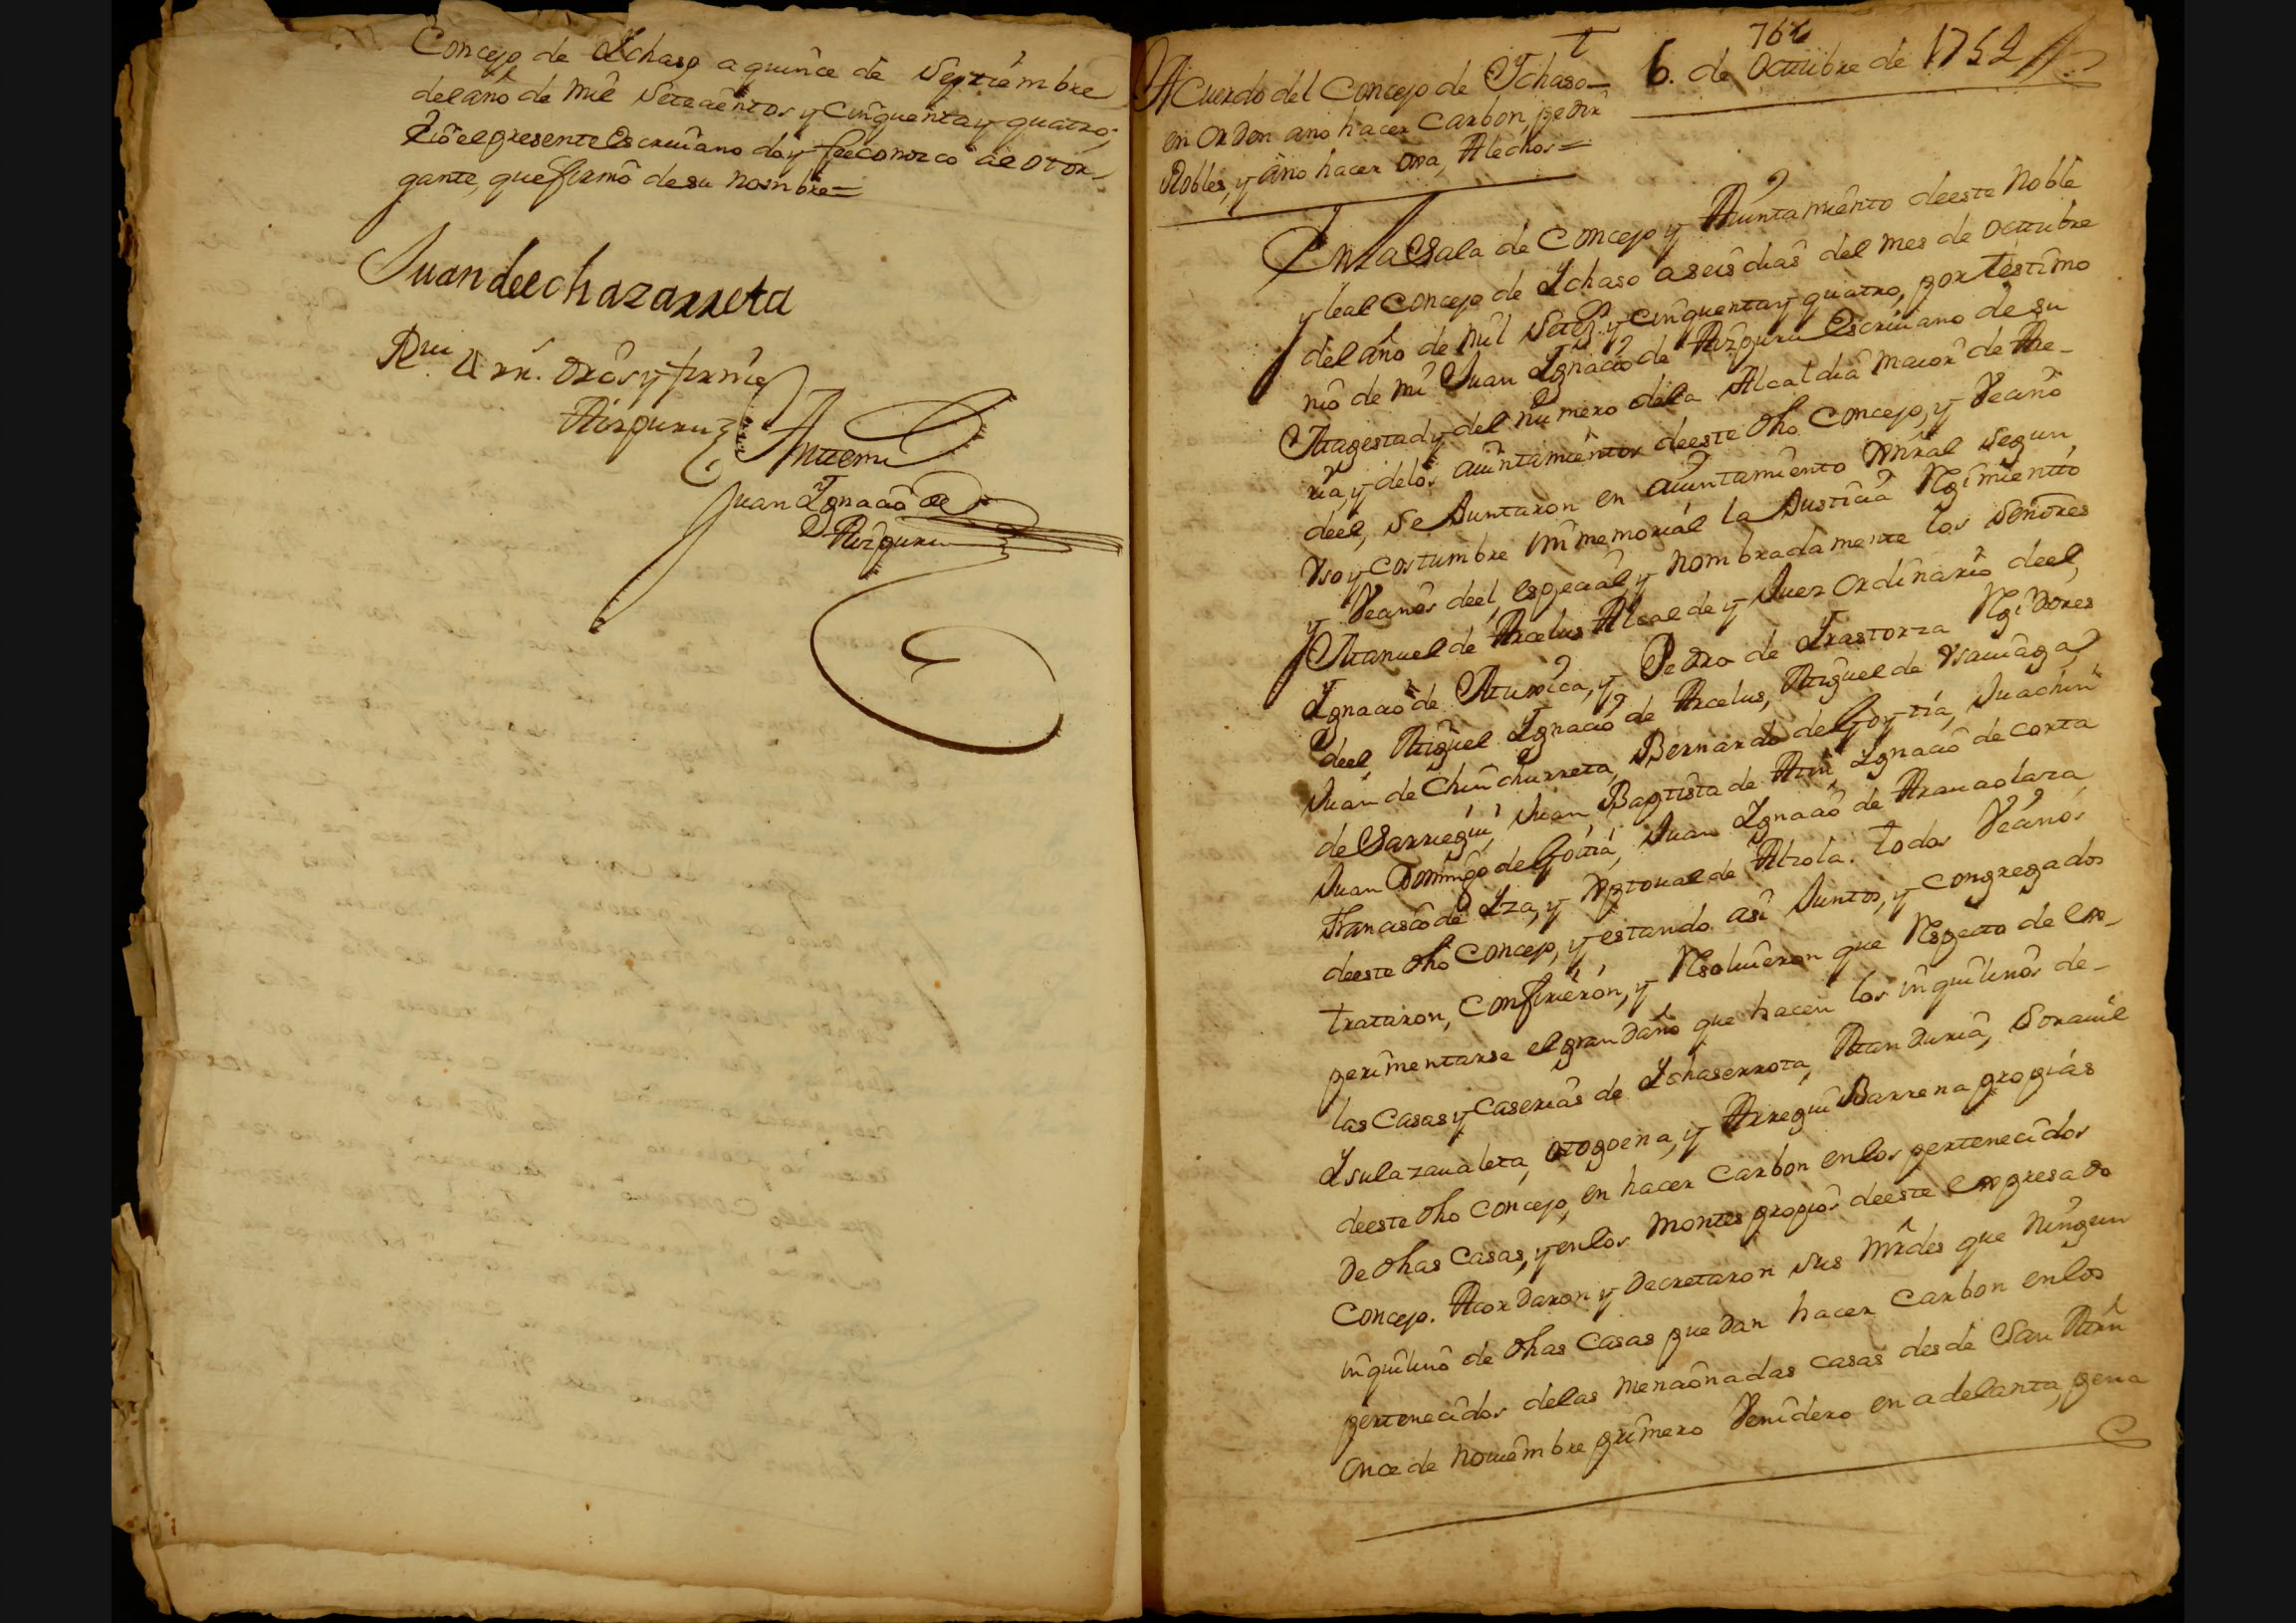 Concejo de Ychaso a quince de Septiembre
del año de mil Setecientos y cinquenta y quatro;
è Yo el presente Escriuano doy fee conozco al otor-
gante, que firmô de su nombre=
Juan de echazarreta
dros y firmé
Aizpuru
Antemi
Juan Ygnacio de
Aizpuru
Acuerdo del Concejo de Ychaso=
en orden a no hacer Carbon, pedir
Robles, y a no hacer Ora, Alechos=
6. de Octtubre de 1754
En la Sala de Concejo y Aiuntamiento de este Noble
y leal Concejo de Ychaso a seis dias del mes de octtubre
del año de mil Setez.s y cinquenta y quatro, por testimo
nio de mi Juan Ygnacio de Aizpuru Escriuano de su
Magestad y del numero de la Alcaldia maior de Are-
ria, y de los aiuntamientos de este dho Concejo, y Vecino
de el, se Juntaron en aiuntamiento Genêral segun
Vso y costumbre immemorial la Justicia Regimiento
y Vecinos de el, especial y nombradamente los Señores
Manuel de Arcelus Alcalde y Juez ordinario de el,
Ygnacio de Mugica, y Pedro de Yrastorza Regidores
de el, Miguel Ygnacio de Arcelus, Miguel de Vsauiaga,
Juan de Chinchurreta, Bernardo de Goytia, Juachin
de Sarriegui, Juan Baptista de Ygnacio de corta
Juan Domingo de Goitia, Juan Ygnacio de Aramaolaza
Francisco de Yza, y de Alzola. todos Vecinos
de este dho Concejo, y estando asi Juntos, y congregados
trataron, confirieron, y Resoluieron que Respecto de ex-
perimentarse el gran daño que hacen los inquilinos de-
las Casas y Caserias de Ychaserrota, Mandiria, Sorauil
Ysulazaualeta, otogoena, y Arregui Barrena propias
de este dho Concejo, en hacer Carbon en los pertenecidos
de dhas Casas, y en los montes propios de este expresado
Concejo. Acordaron y Decretaron sus mrds que ningun
inquilino de dhas Casas puedan hacer Carbon en los
pertenecidos de las mencionadas casas desde San Mrn
once de Nouiembre primero Venidero en adelanta, pena